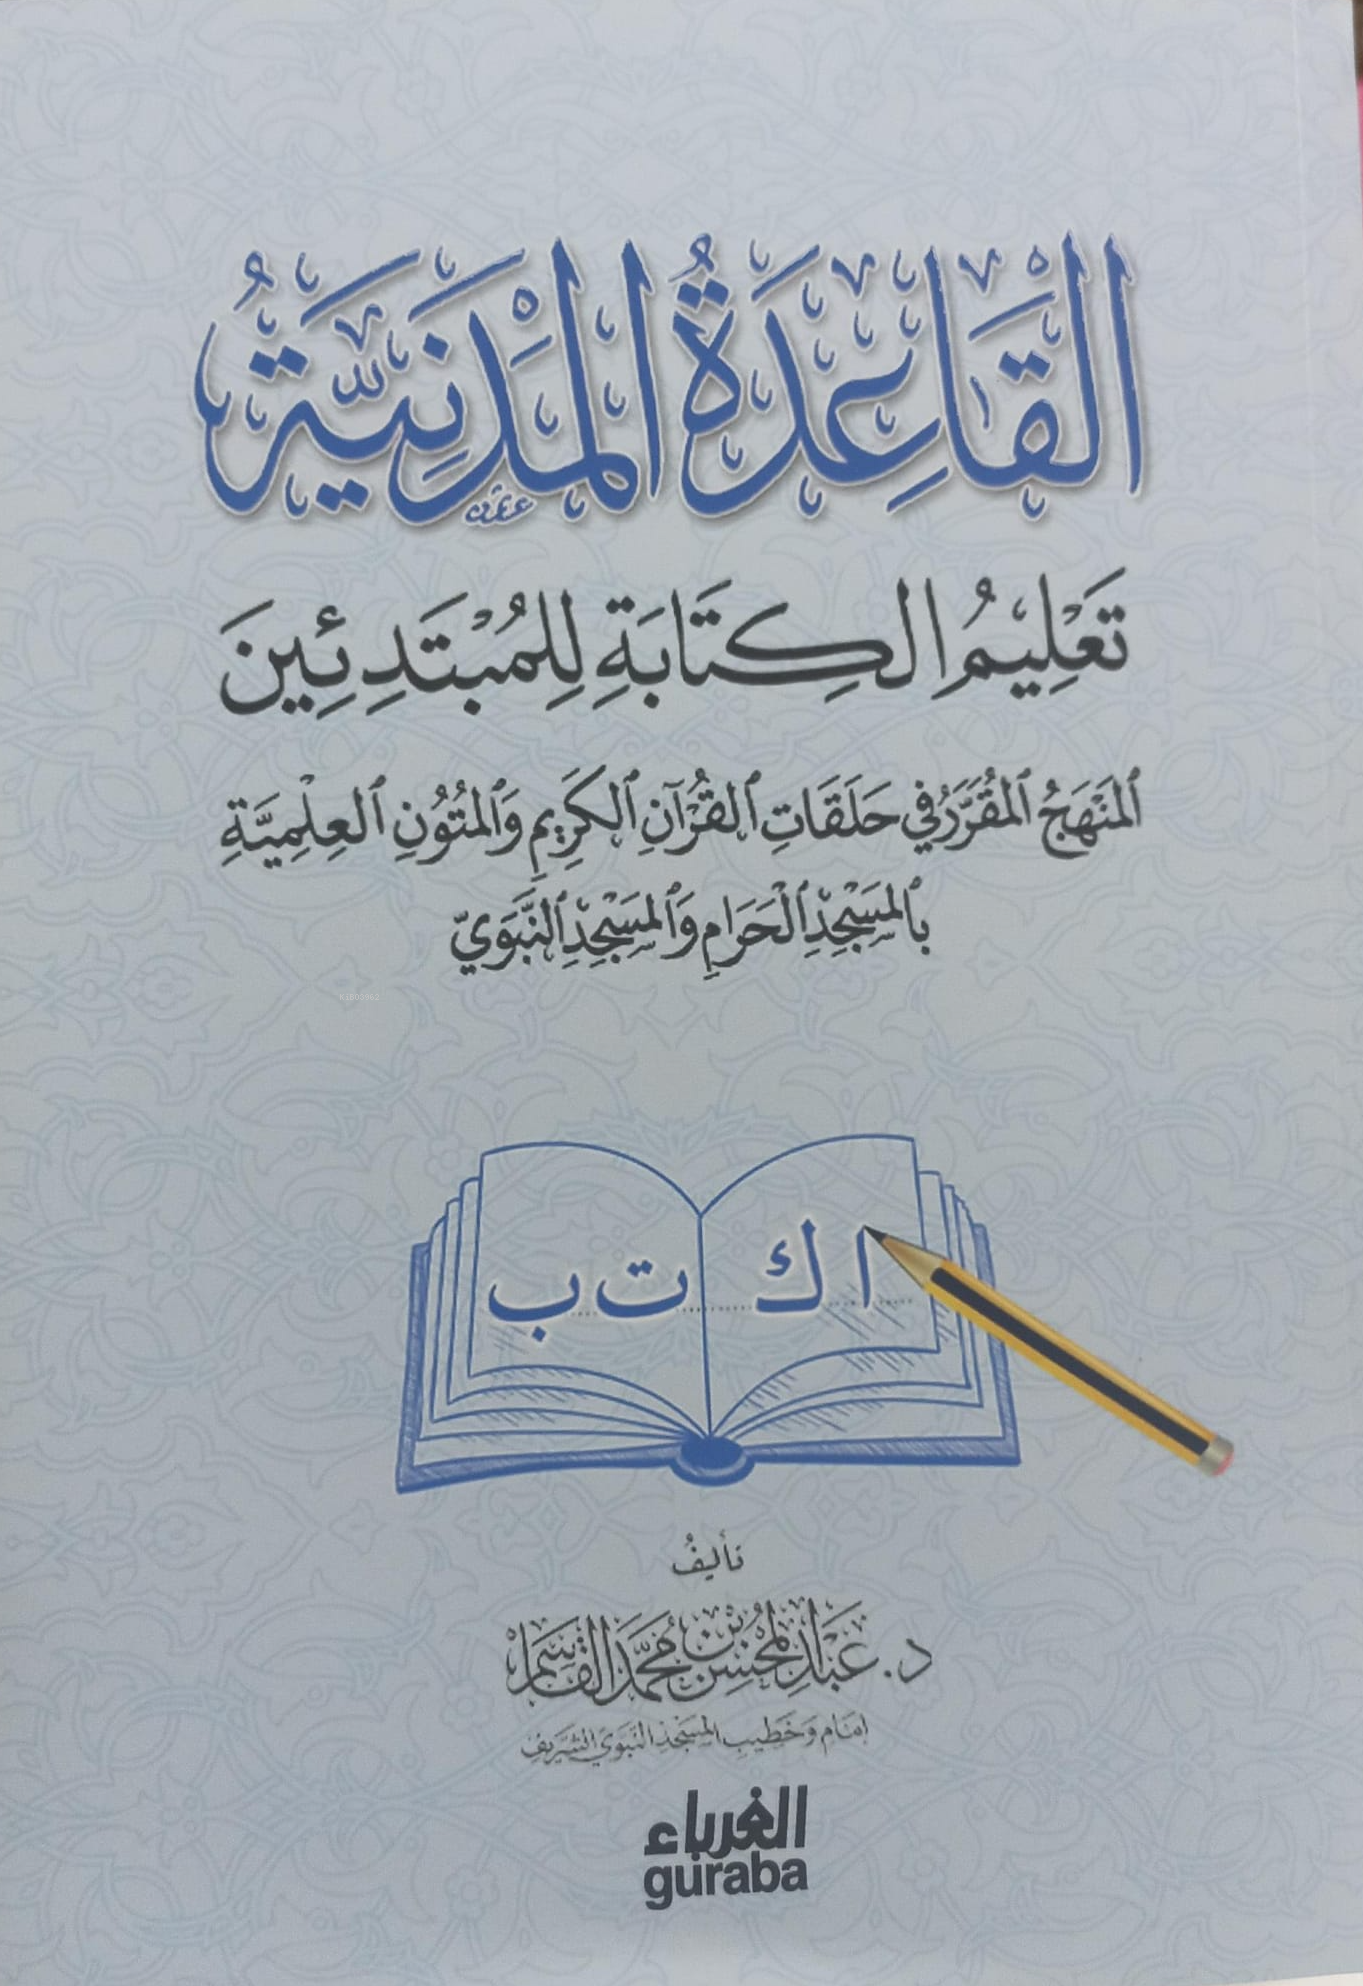 القَاعِدَةُ المَدَنِيَّةُ
تَعْلِيمُ الكِتَابَةِ لِلْمُبْتَدِئِينَ
ٱلمَنْهَجُ ٱلمُقَرَّرُ فِي حَلَقَاتِ ٱلقُرْآنِ ٱلكَرِيمِ وَٱلمُتُونِ ٱلعِلْمِيَّةِ
بِٱلمَسْجِدِ ٱلْحَرَامِ وَٱلمَسْجِدِ ٱلنَّبَوِيّ
ا ك ت ب
تأليفُ
د. عَبْدُ الْمُحْسِن بْنُ مُحَمَّد القَاسِم
إمَام وَخَطِيب المَسْجِد النَّبَوِي الشَّرِيفِ
الغرباء
guraba